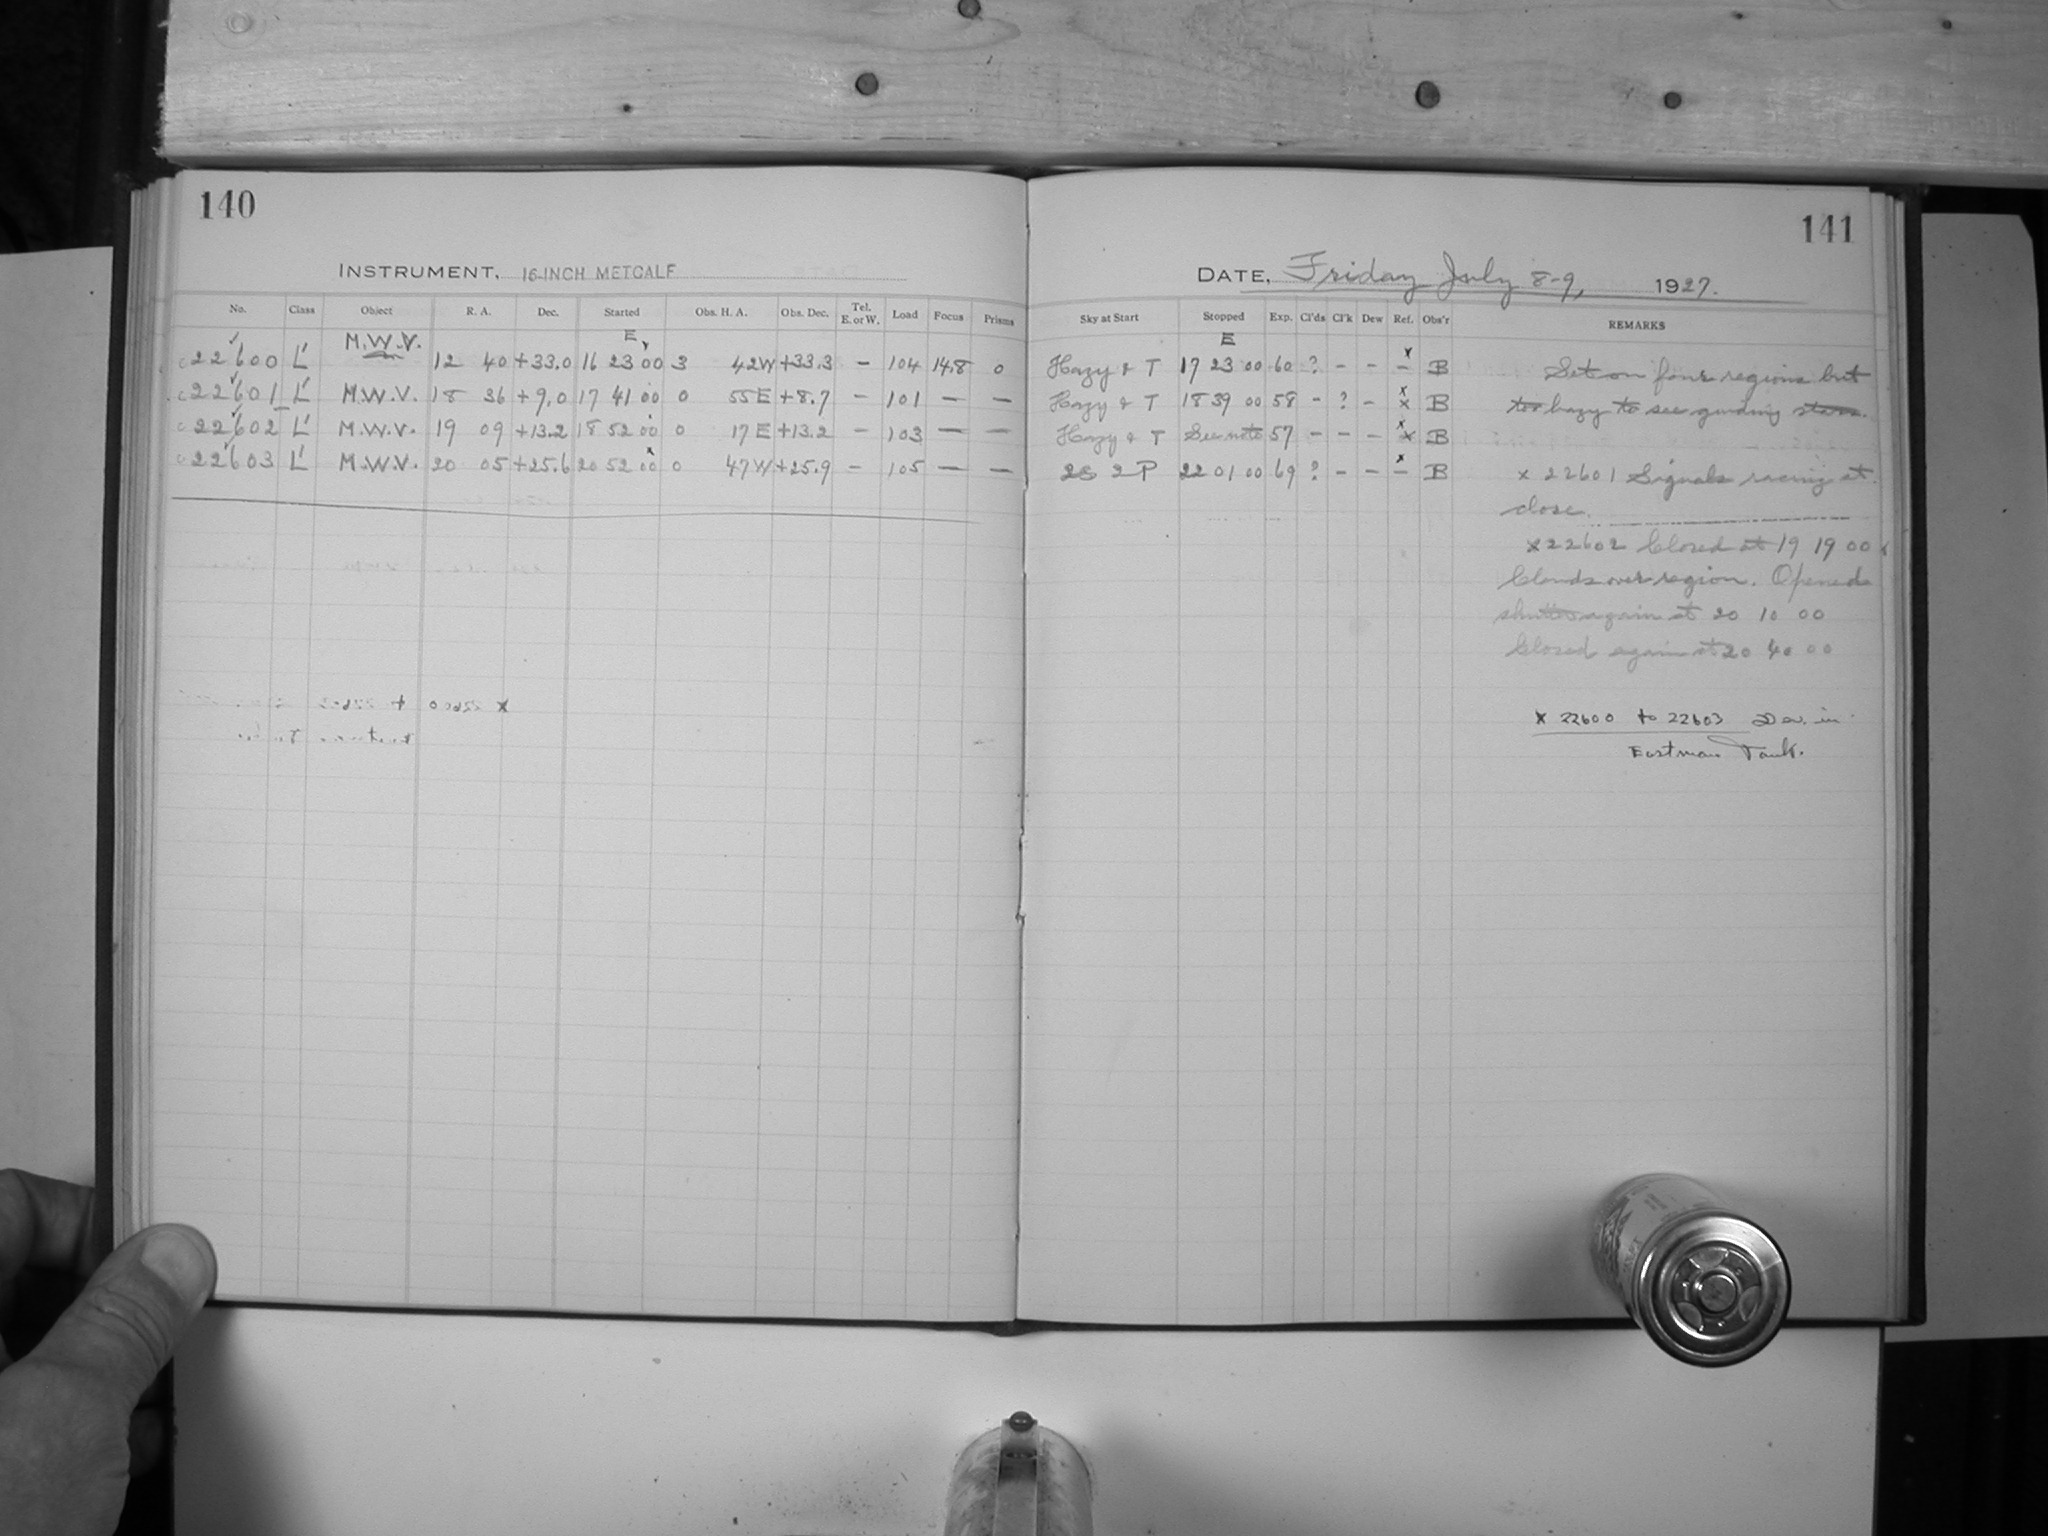 140
INSTRUMENT, 16-INCH METCALF
No. Class Object R. A. Dec. Started Obs. H. A. Obs. Dec. Tel. E. or W. Load Focus Prisms
E
22600 L' M.W.V. 12 40 +33.0 16 23 00 3 42W +33.3 – 104 14.8 0
22601 L' M.W.V. 18 36 +9.0 17 41 00 0 55E +8.7 – 101 — —
22602 L' M.W.V. 19 09 +13.2 18 52 00 0 17E +13.2 – 103 — —
22603 L' M.W.V. 20 05 +25.6 20 52 00 0 47W +25.9 – 105 — —
141
DATE, Friday July 8-9, 1927.
Sky at Start Stopped Exp. Cl'ds Cl'k Dew Ref. Obs'r REMARKS
E
Hazy & T 17 23 00 60 ? – – x – B
Hazy & T 18 39 00 58 – ? – x x B
Hazy & T See note 57 – – – x x B
2S 2P 22 01 00 69 ? – – x – B
Set on four regions but
too hazy to see guiding stars.
x 22601 Signals racing at
close.
x 22602 Closed at 19 19 00
Clouds over region. Opened
shutter again at 20 10 00
Closed again at 20 40 00
x 22600 to 22603 Dev. in
Eastman Tank.